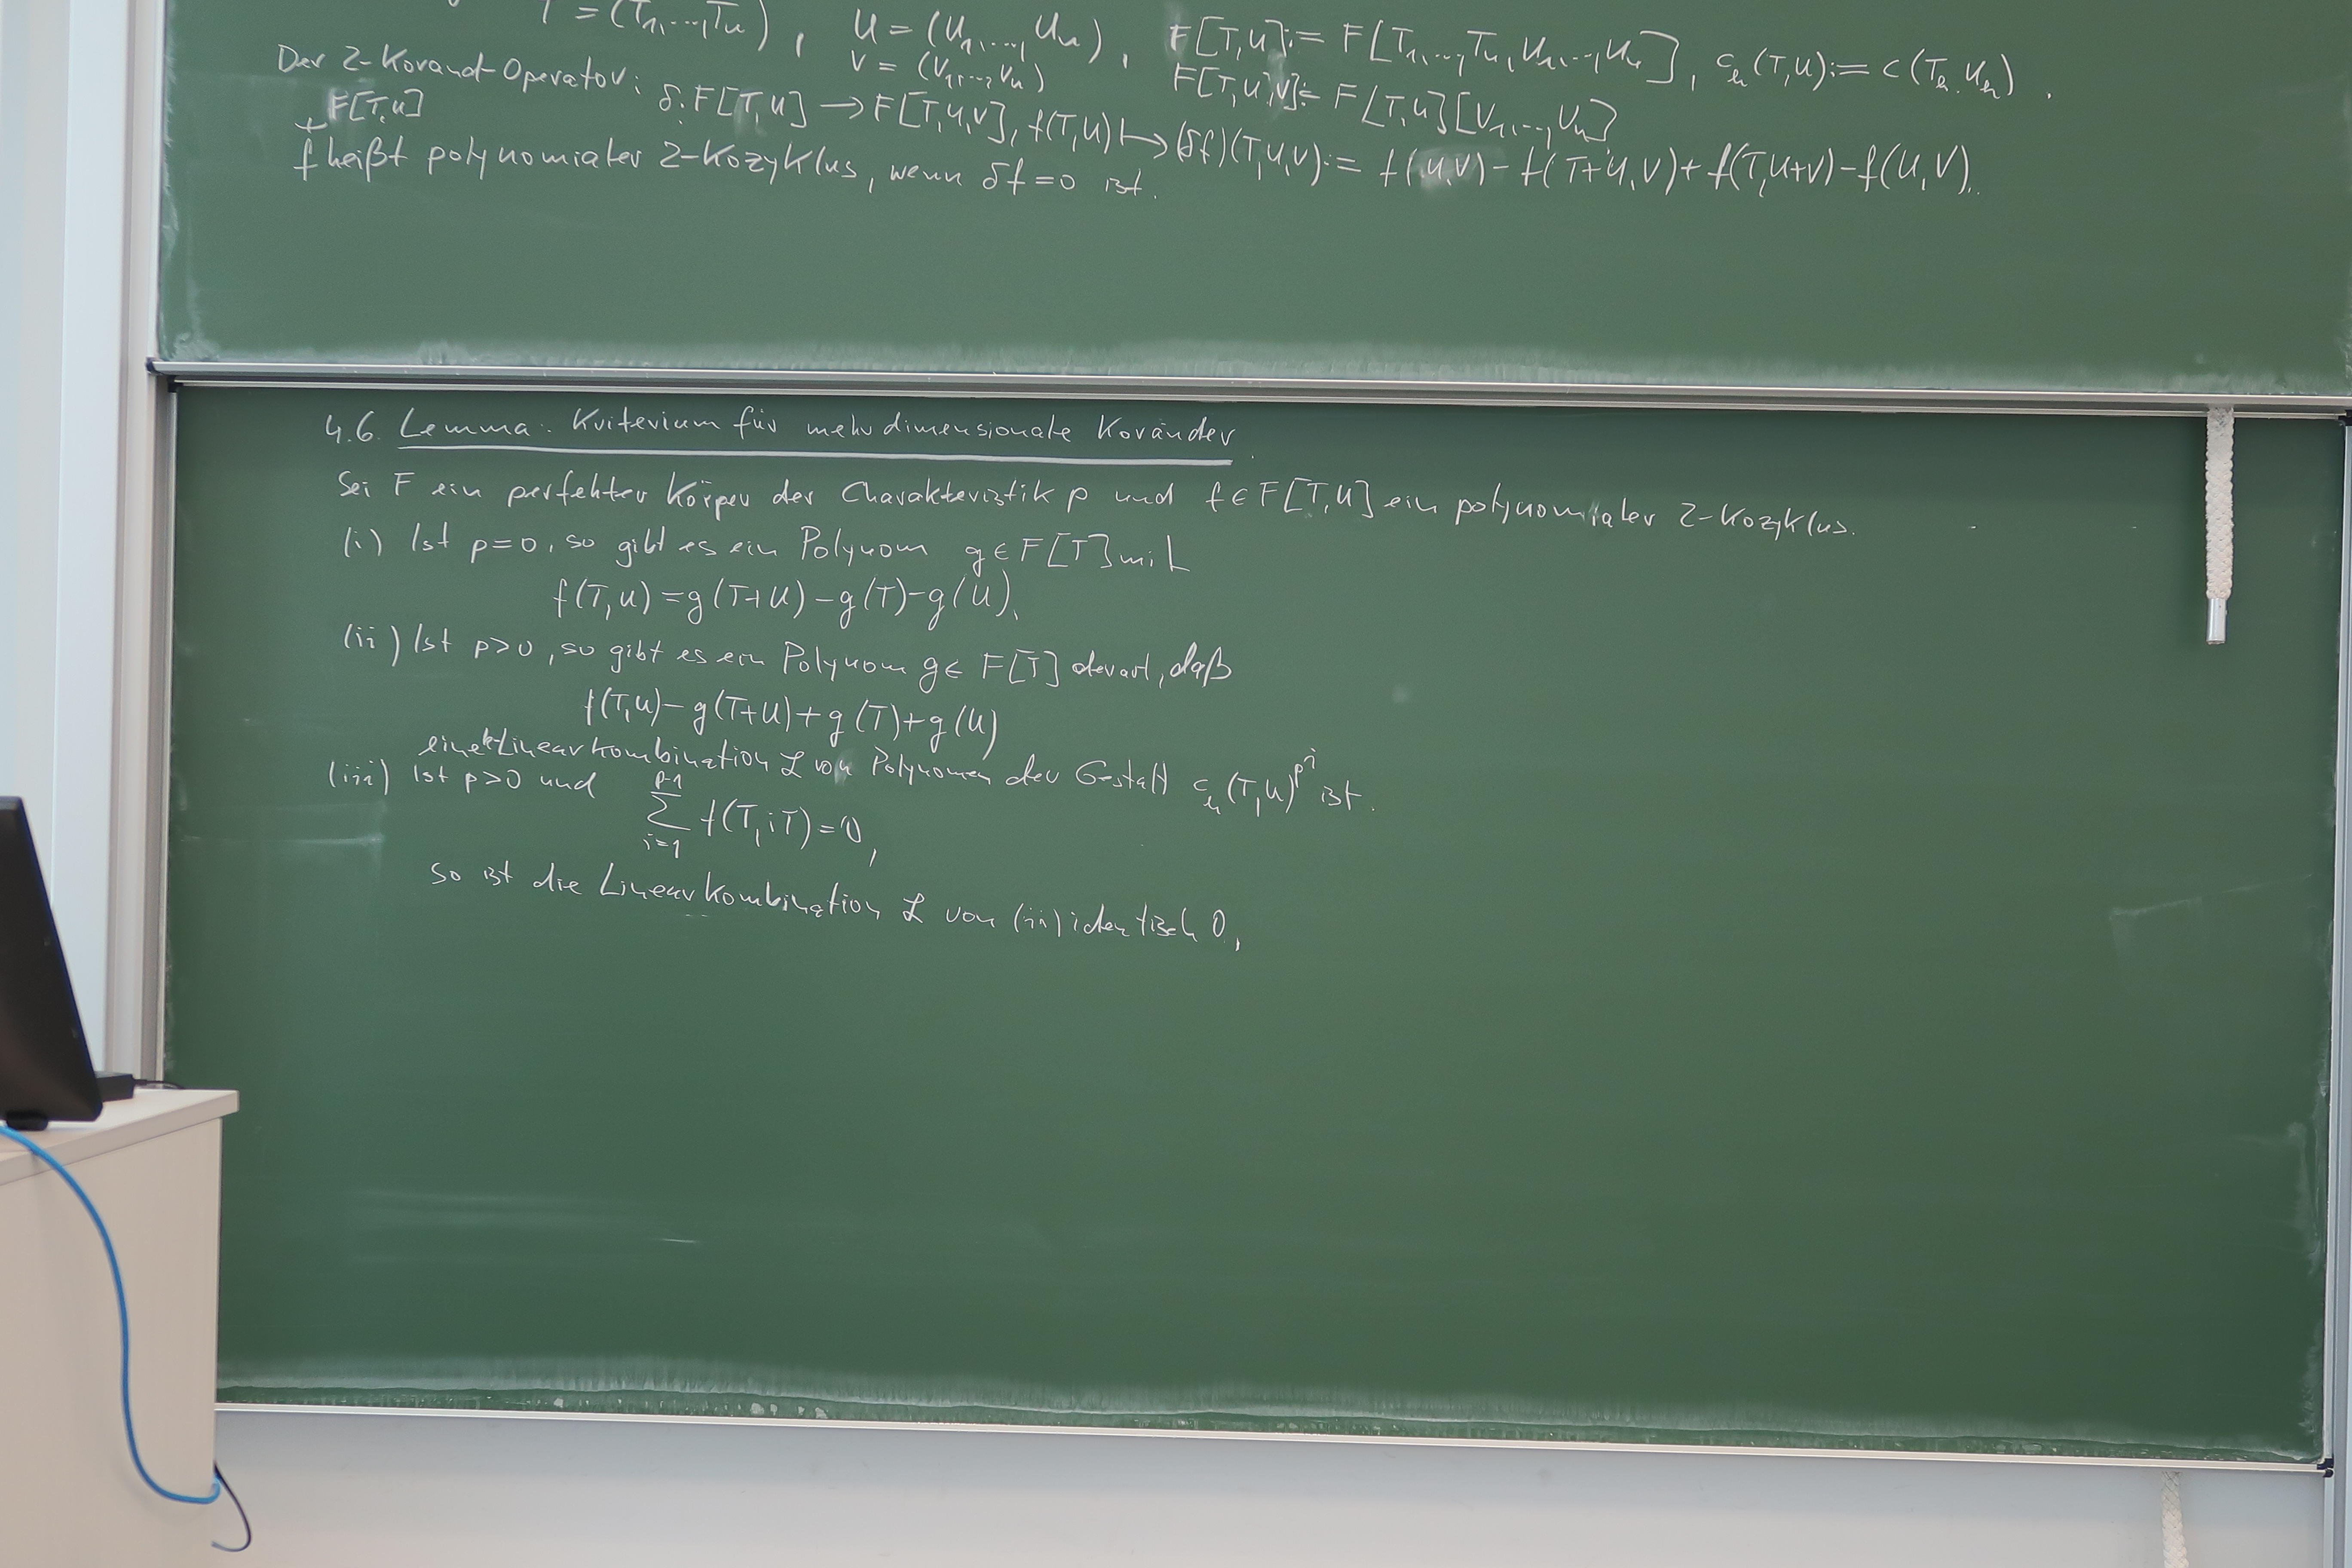 T = (T₁,...,Tₙ), U = (U₁,...,Uₙ), F[T,U] := F[T₁,...,Tₙ,U₁,...,Uₙ], cₖ(T,U) := c(Tₖ,Uₖ).
V = (V₁,...,Vₙ) F[T,U,V] := F[T,U][V₁,...,Vₙ]
Der 2-Korand-Operator: δ: F[T,U] → F[T,U,V], f(T,U) ↦ (δf)(T,U,V) := f(U,V) - f(T+U,V) + f(T,U+V) - f(U,V).
F[T,U]
f heißt polynomialer 2-Kozyklus, wenn δf = 0 ist.
4.6. Lemma: Kriterium für mehrdimensionale Koränder
Sei F ein perfekter Körper der Charakteristik p und f ∈ F[T,U] ein polynomialer 2-Kozyklus.
(i) Ist p=0, so gibt es ein Polynom g ∈ F[T] mit
f(T,U) = g(T+U) - g(T) - g(U).
(ii) Ist p>0, so gibt es ein Polynom g ∈ F[T] derart, daß
f(T,U) - g(T+U) + g(T) + g(U)
eine Linearkombination ℒ von Polynomen der Gestalt cₖ(T,U)^{p^i} ist.
(iii) Ist p>0 und ∑_{i=1}^{p-1} f(T,iT) = 0,
so ist die Linearkombination ℒ von (ii) identisch 0.